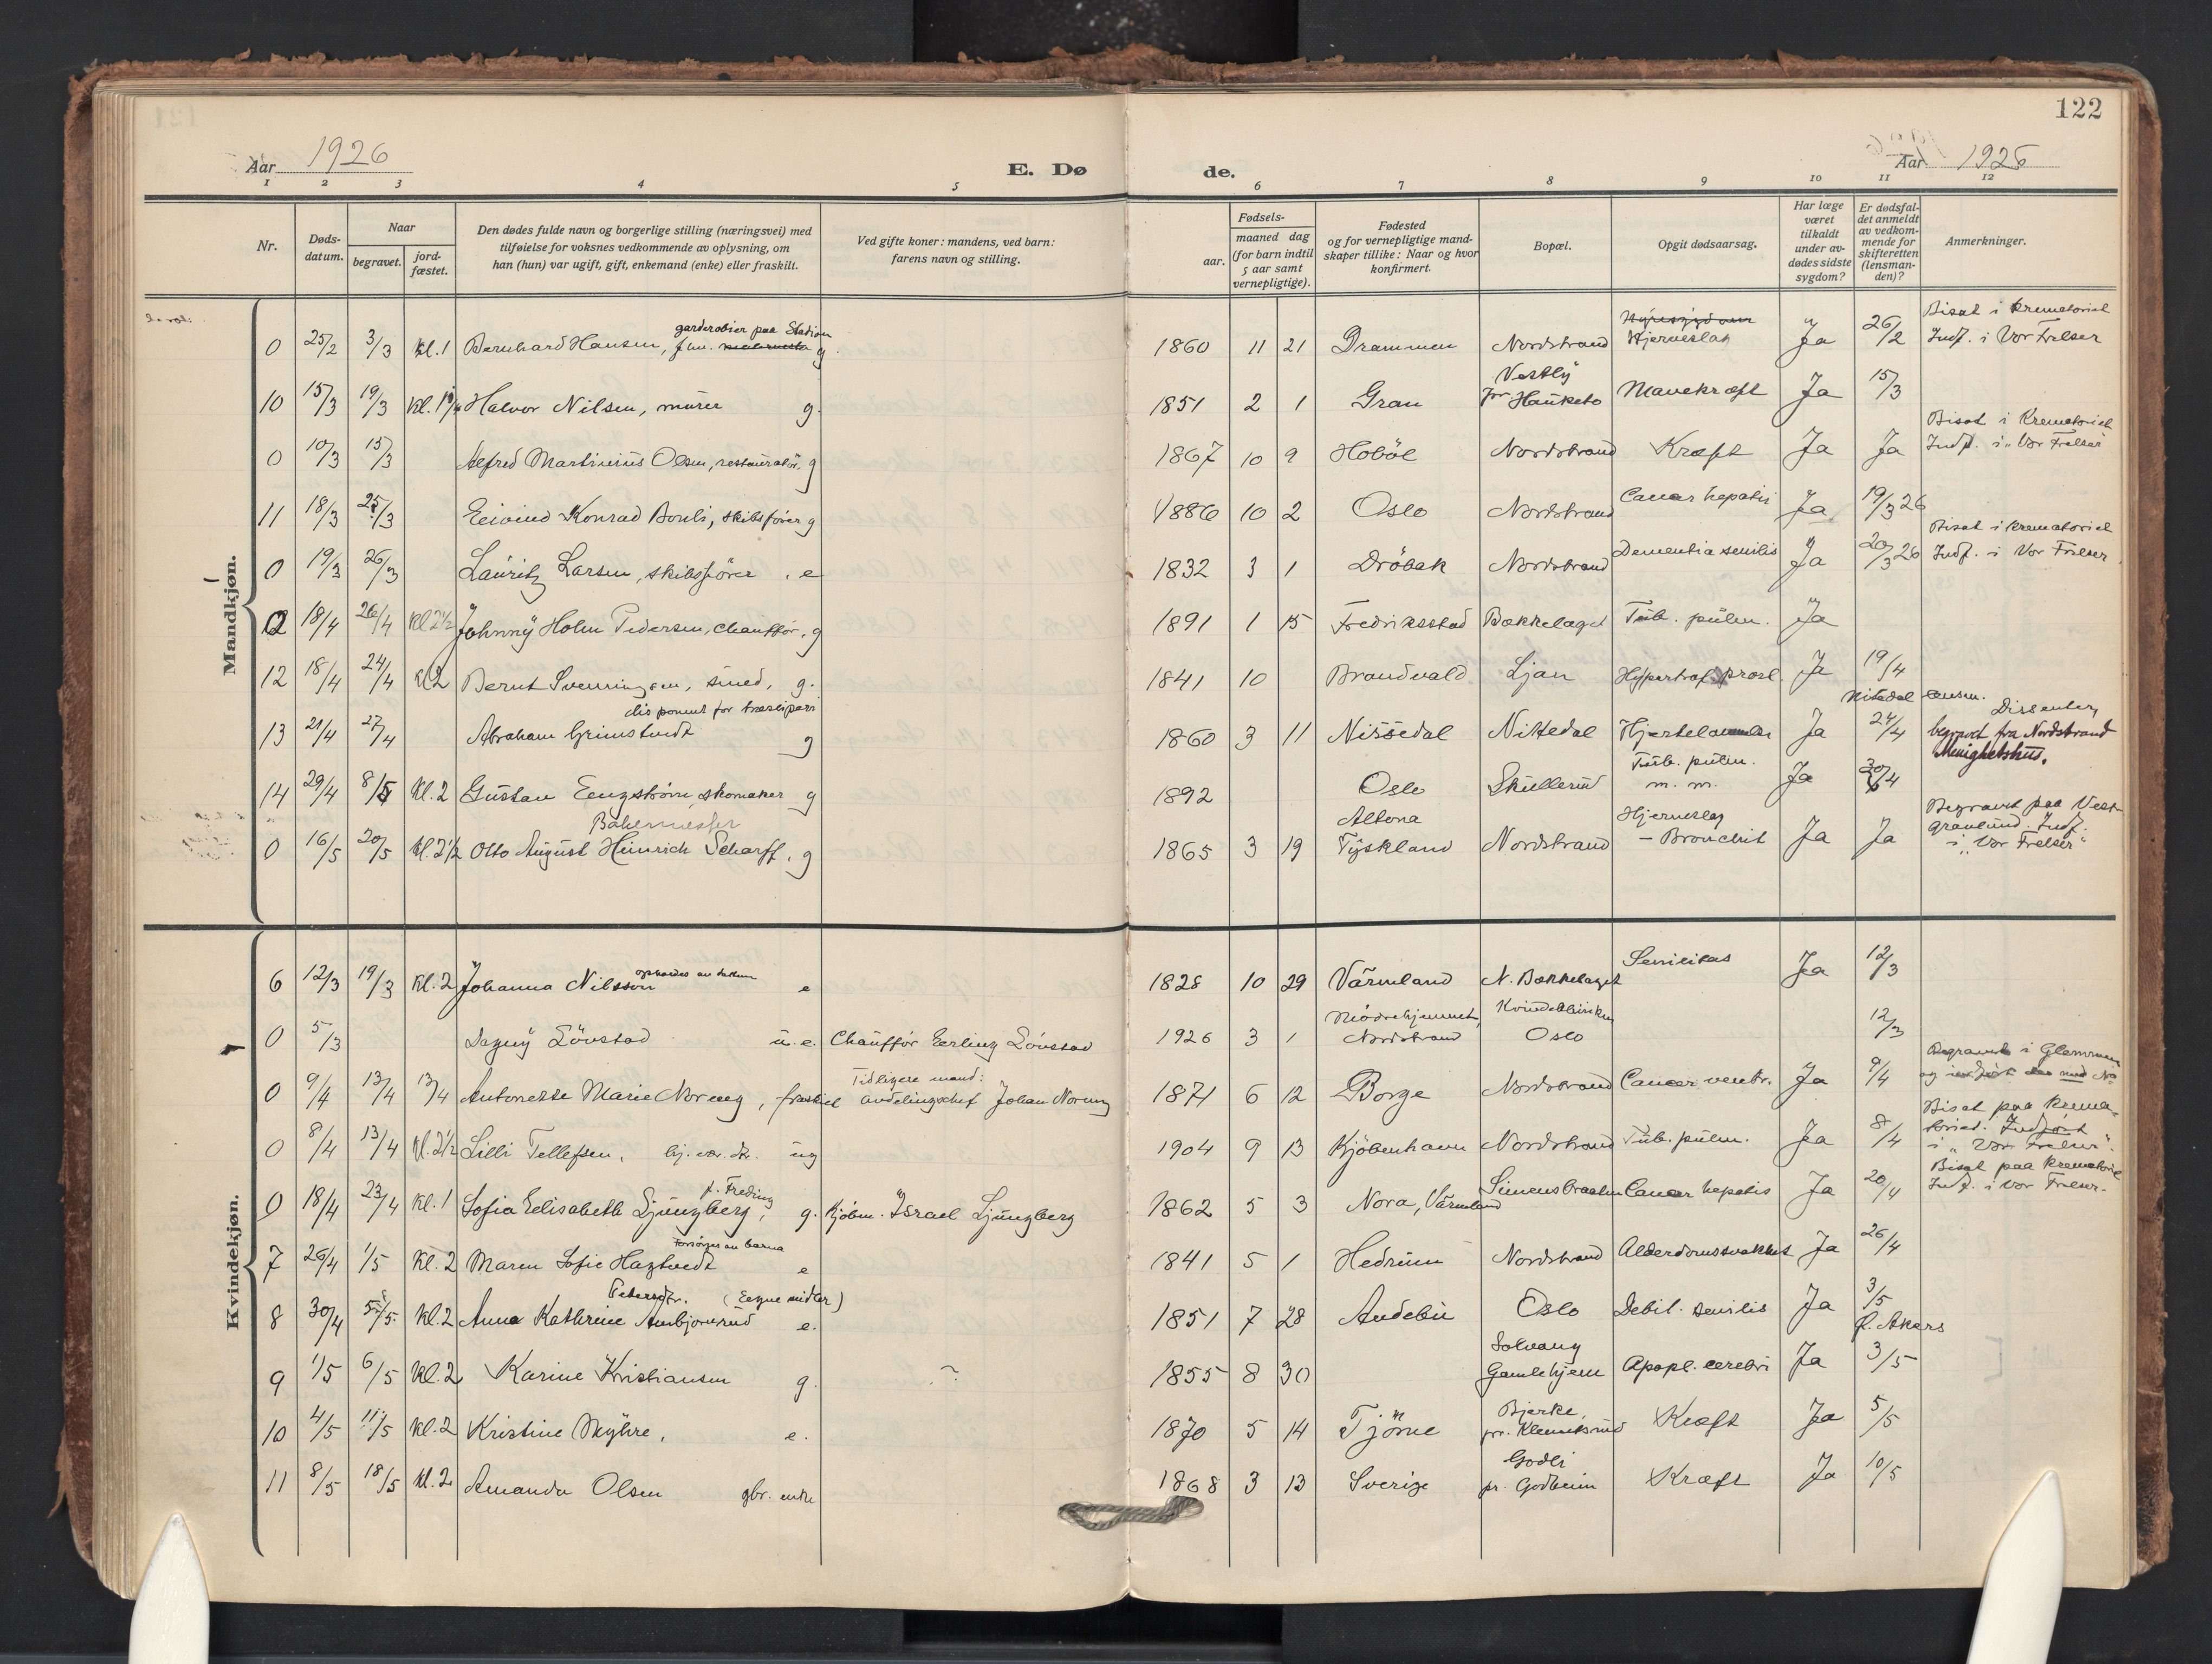 122
Aar 1926
E. Dø
de.
Aar 1926
1 2 3 4 5 6 7 8 9 10 11 12
Nr.
Døds-
datum.
Naar
begravet.
jord-
fæstet.
Den dødes fulde navn og borgerlige stilling (næringsvei) med
tilføielse for voksnes vedkommende av oplysning, om
han (hun) var ugift, gift, enkemand (enke) eller fraskilt.
Ved gifte koner: mandens, ved barn:
farens navn og stilling.
Fødsels-
aar.
maaned dag
(for barn indtil
5 aar samt
vernepligtige).
Fødested
og for vernepligtige mand-
skaper tillike: Naar og hvor
konfirmert.
Bopæl.
Opgit dødsaarsag.
Har læge
været
tilkaldt
under av-
dødes sidste
sygdom?
Er dødsfal-
det anmeldt
av vedkom-
mende for
skifteretten
(lensman-
den)?
Anmerkninger.
Mandkjøn.
garderobier paa Stadion
Bisat i Krematoriet
0 25/2 3/3 Kl. 1 Bernhard Hansen, g. 1860 11 21 Drammen Nordstrand Hjerneslag Ja 26/2 Indf. i Vor Frelser
Vestly
10 15/3 19/3 Halvor Nilsen, murer g. 1851 2 1 Gran pr. Hauketo Mavekræft Ja 15/3
Bisat i Krematoriet
0 10/3 15/3 Alfred Martinius Olsen, restauratør. g 1867 10 9 Hobøl Nordstrand Kræft Ja Ja Indf. i "Vor Frelser"
11 18/3 25/3 Eivind Konrad Bouli, skibsfører g 1886 10 2 Oslo Nordstrand Cancer hepatis Ja 19/3 26
Bisat i Krematoriet
0 19/3 26/3 Lauritz Larsen, skibsfører. e 1832 3 1 Drøbak Nordstrand Dementia senilis Ja 20/3 26 Indf. i Vor Frelser
0 18/4 26/4 Kl 2 1/2 Johnny Holm Pedersen, chauffør, g 1891 1 15 Fredriksstad Bækkelaget Tub. pulm. Ja
12 18/4 24/4 Kl 2 Bernt Svenningsen, smed, g. 1841 10 Brandvald Ljan Hypertrof. prost. Ja 19/4
disponent for træsliperi
Nitedal lensm.
Dissenter,
13 21/4 27/4 Abraham Grimstvedt g 1860 3 11 Nissedal Nittedal Ja 24/4 begravet fra Nordstrand
Menighetshus.
14 29/4 8/5 Kl. 2 Gustav Eengstrøm, skomaker g 1892 Oslo Skullerud Tub. pulm. m. m. Ja 30/4
Bakermester
Altona
Hjerneslag
Begravet paa Vestre
gravlund. Indf.
0 16/5 20/5 Kl. 2 1/2 Otto August Heinrich Scharff, g 1865 3 19 Tyskland Nordstrand - Bronchit Ja Ja i "Vor Frelser"
Kvindekjøn.
6 12/3 19/3 Kl. 2 Johanna Nilsson e 1828 10 29 Värmland N. Bækkelaget Senilitas Ja 12/3
Mødrehjemmet, Kvindeklinikken
0 5/3 Dagny Lövstad u. e. Chauffør Eerling Lövstad 1926 3 1 Nordstrand Oslo 12/3
Tidligere mand:
Begravet i Glemmen
0 9/4 13/4 13/4 Antonette Marie Noreng, fraskil avdelingschef Johan Noreng 1871 6 12 Borge Nordstrand Cancer ventr. Ja 9/4
Bisat paa Krema-
toriet. Indført
0 8/4 13/4 Kl. 2 1/2 Lilli Tellefsen, hj. vær. dtr. ug 1904 9 13 Kjöbenhavn Nordstrand Tub. pulm. Ja 8/4 i "Vor Frelser".
f. Freding
Bisat paa Krematoriet
0 18/4 23/4 Kl. 1 Sofia Eelisabeth Ljungberg, g. Kjøbm. Israel Ljungberg 1862 5 3 Nora, Värmland Simensbraaten Cancer hepatis Ja 20/4 Indf. i Vor Frelser.
Forsørges av barna
7 26/4 1/5 Kl. 2 Maren Sofie Hagtvedt e 1841 5 1 Hedrum Nordstrand Alderdomssvakhet Ja 26/4
Petersdtr. (Eegne midler)
8 30/4 5/5 Kl. 2 Anna Kathrine Aunbjørnrud e. 1851 7 28 Andebu Oslo Debil. senilis Ja 3/5
Akers
Solvang
9 1/5 6/5 Kl. 2 Karine Kristiansen g. ~ 1855 8 30 Gamlehjem Apopl. cerebri Ja 3/5
Bjerke,
10 4/5 11/5 Kl. 2 Kristine Myhre, e. 1870 5 14 Tjöme pr. Klemetsrud Kræft Ja 5/5
Godli
11 8/5 18/5 Kl. 2 Amanda Olsen gbr. enke 1868 3 13 Sverige pr. Godheim Kræft Ja 10/5